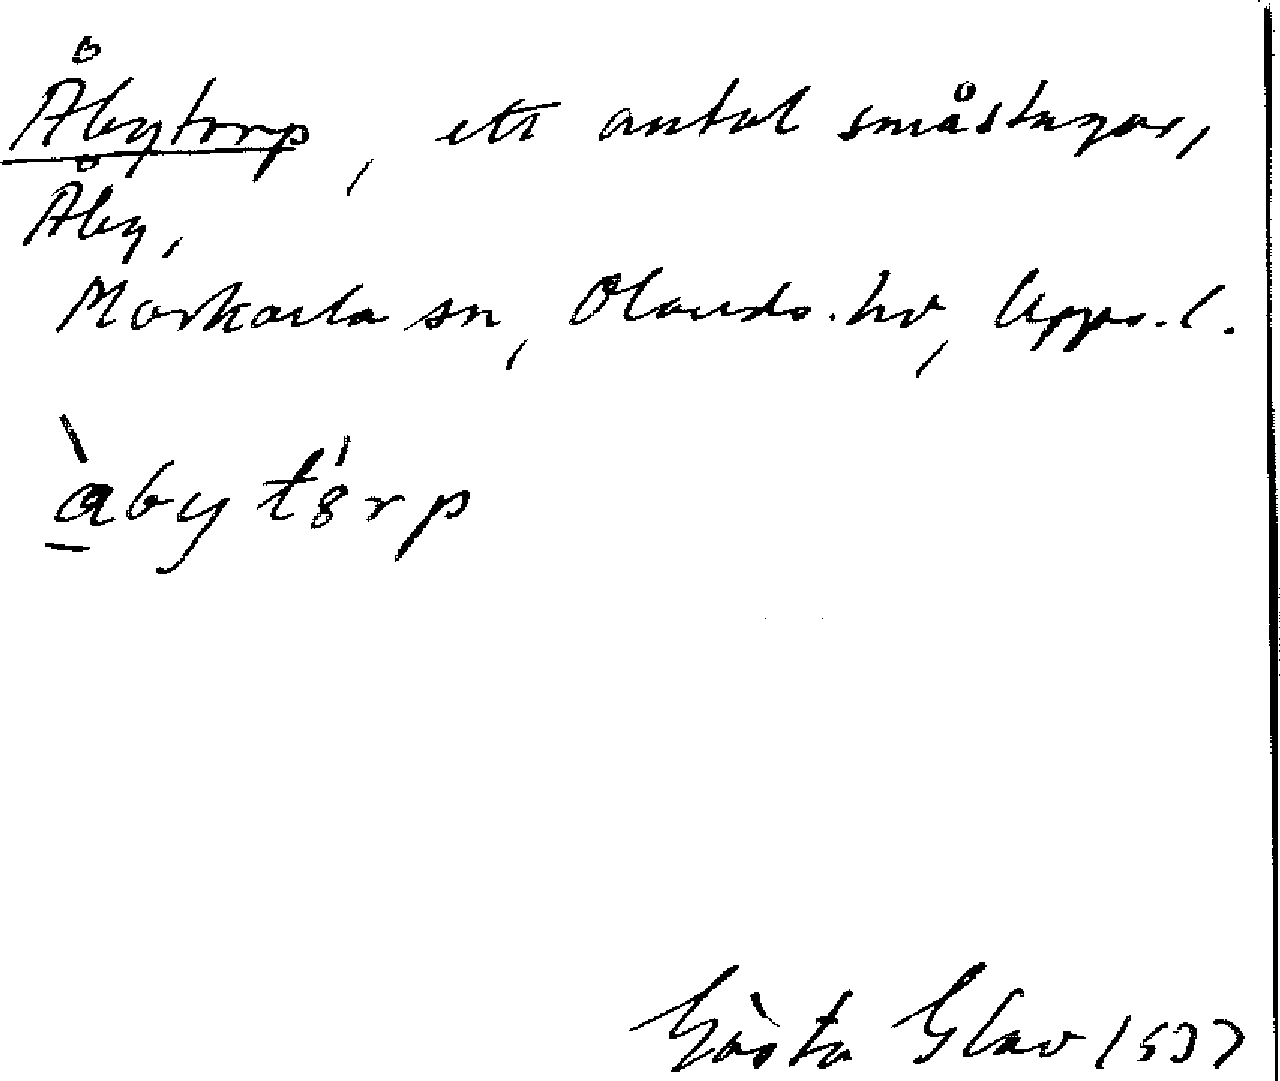 Åbytorp, ett antal småstugor,
Åby,
Morkarla sn, Olands. hd, Upps. l.
àbytȣ́rp
Gösta Glav 1937